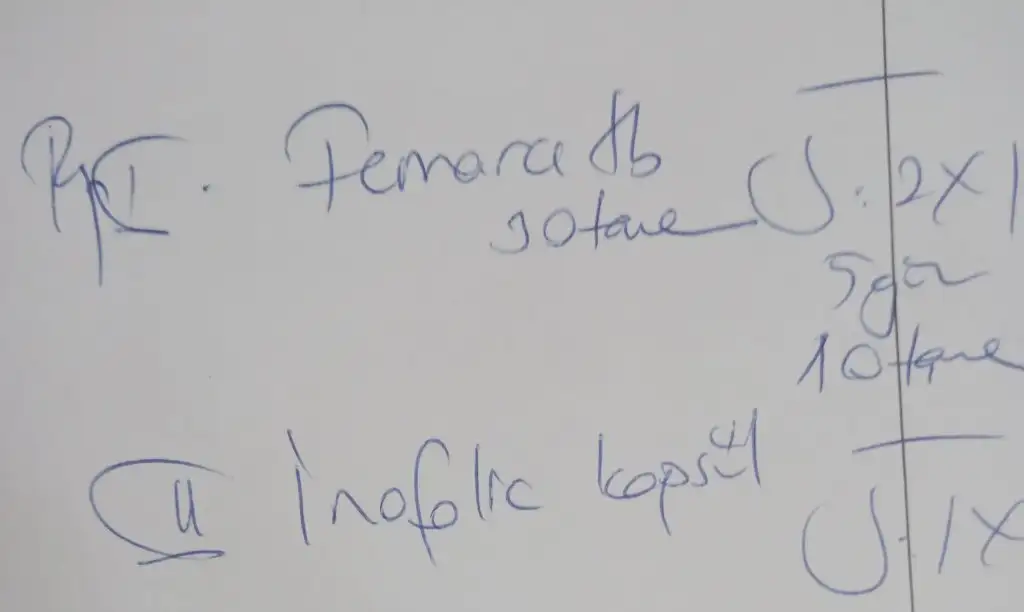 Rp I. Femara tb
30 tane S: 2x1
5 gün
10 tane
II İnofolic kapsül
S: 1x